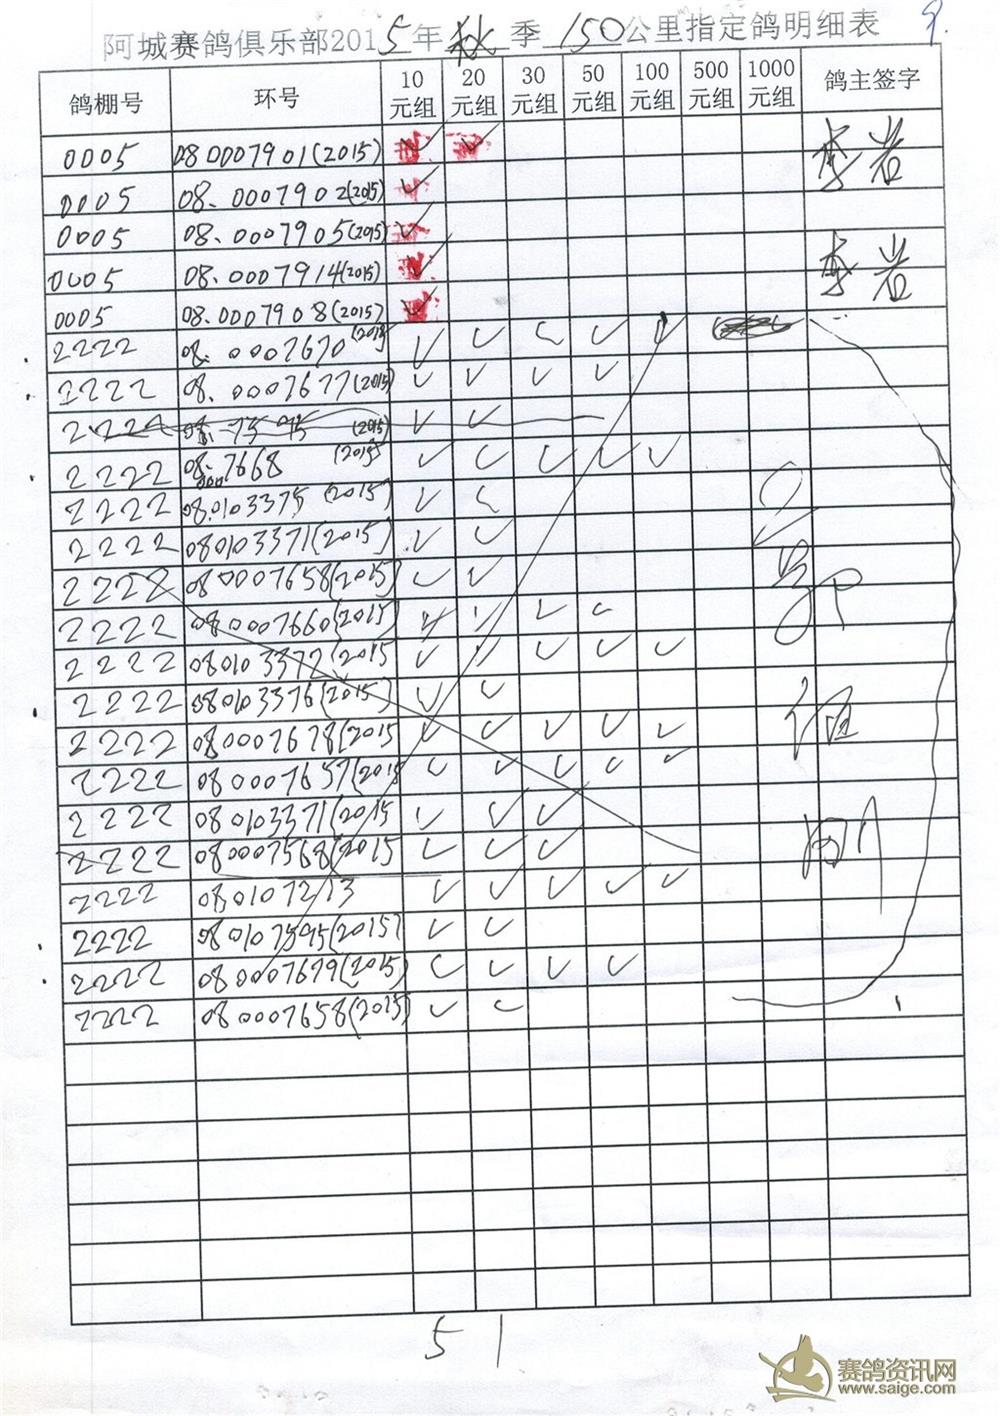 阿城赛鸽俱乐部2015年秋季150公里指定鸽明细表 9.
鸽棚号 环号 10元组 20元组 30元组 50元组 100元组 500元组 1000元组 鸽主签字
0005 08 0007901(2015) ✓ ✓ 李岩
0005 08.0007902(2015) ✓
0005 08.0007905(2015) ✓
0005 08.0007914(2015) ✓ 李岩
0005 08.0007908(2015) ✓
2222 08.0007670(2015) ✓ ✓ ✓ ✓
2222 08.0007677(2015) ✓ ✓ ✓ ✓
2222 (2015) ✓ ✓
2222 08.0007668(2015) ✓ ✓ ✓ ✓ ✓
2222 08.0103375(2015) ✓ ✓
2222 080103371(2015) ✓ ✓
2222 080007658(2015) ✓ ✓
2222 080007660(2015) ✓ ✓ ✓ ✓
2222 080103372(2015 ✓ ✓ ✓ ✓ ✓
2222 080103376(2015) ✓ ✓
2222 080007678(2015 ✓ ✓ ✓ ✓ ✓
2222 080007657(2015 ✓ ✓ ✓ ✓ ✓
2222 080103371(2015 ✓ ✓ ✓
2222 080007568(2015 ✓ ✓ ✓
2222 080107213 ✓ ✓ ✓ ✓ ✓
2222 080107595(2015) ✓ ✓
2222 080007679(2015) ✓ ✓ ✓ ✓
2222 080007658(2015) ✓ ✓
51
赛鸽资讯网
www.saige.com